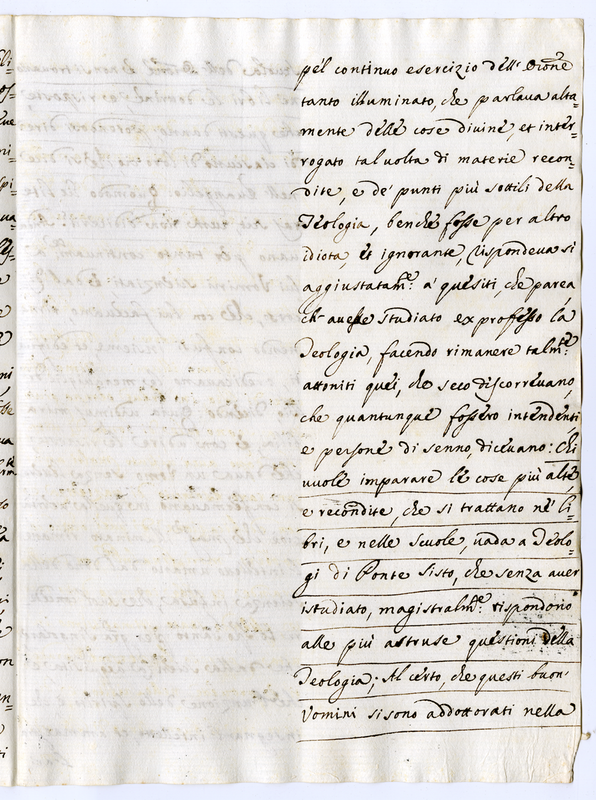 pél continuo esercizio déll' Oróne
tanto illuminato, che parlaua alta=
mente délle cose diuine, et inter=
rogato tal uolta di materie recon=
dite, e de' punti più sottili della
Teologia, benche fosse per altro
idiota, et ignorante, rispondeua si
aggiustatam.e a' quesiti, che parea,
ch' auesse studiato ex professo la
Teologia, facendo rimanere talm.te
attoniti quei, che seco discorreuano,
che quantunque fossero intendenti
e persone di senno, diceuano: Chi
uuole imparare le cose più alte
e recondite, che si trattano ne' li=
bri, e nelle scuole, uada a Teolo=
gi di Ponte Sisto, che senza auer
istudiato, magistralm.e rispondono
alle più astruse questioni della
Teologia; Al certo, che questi buon'
Uomini si sono addottorati nella